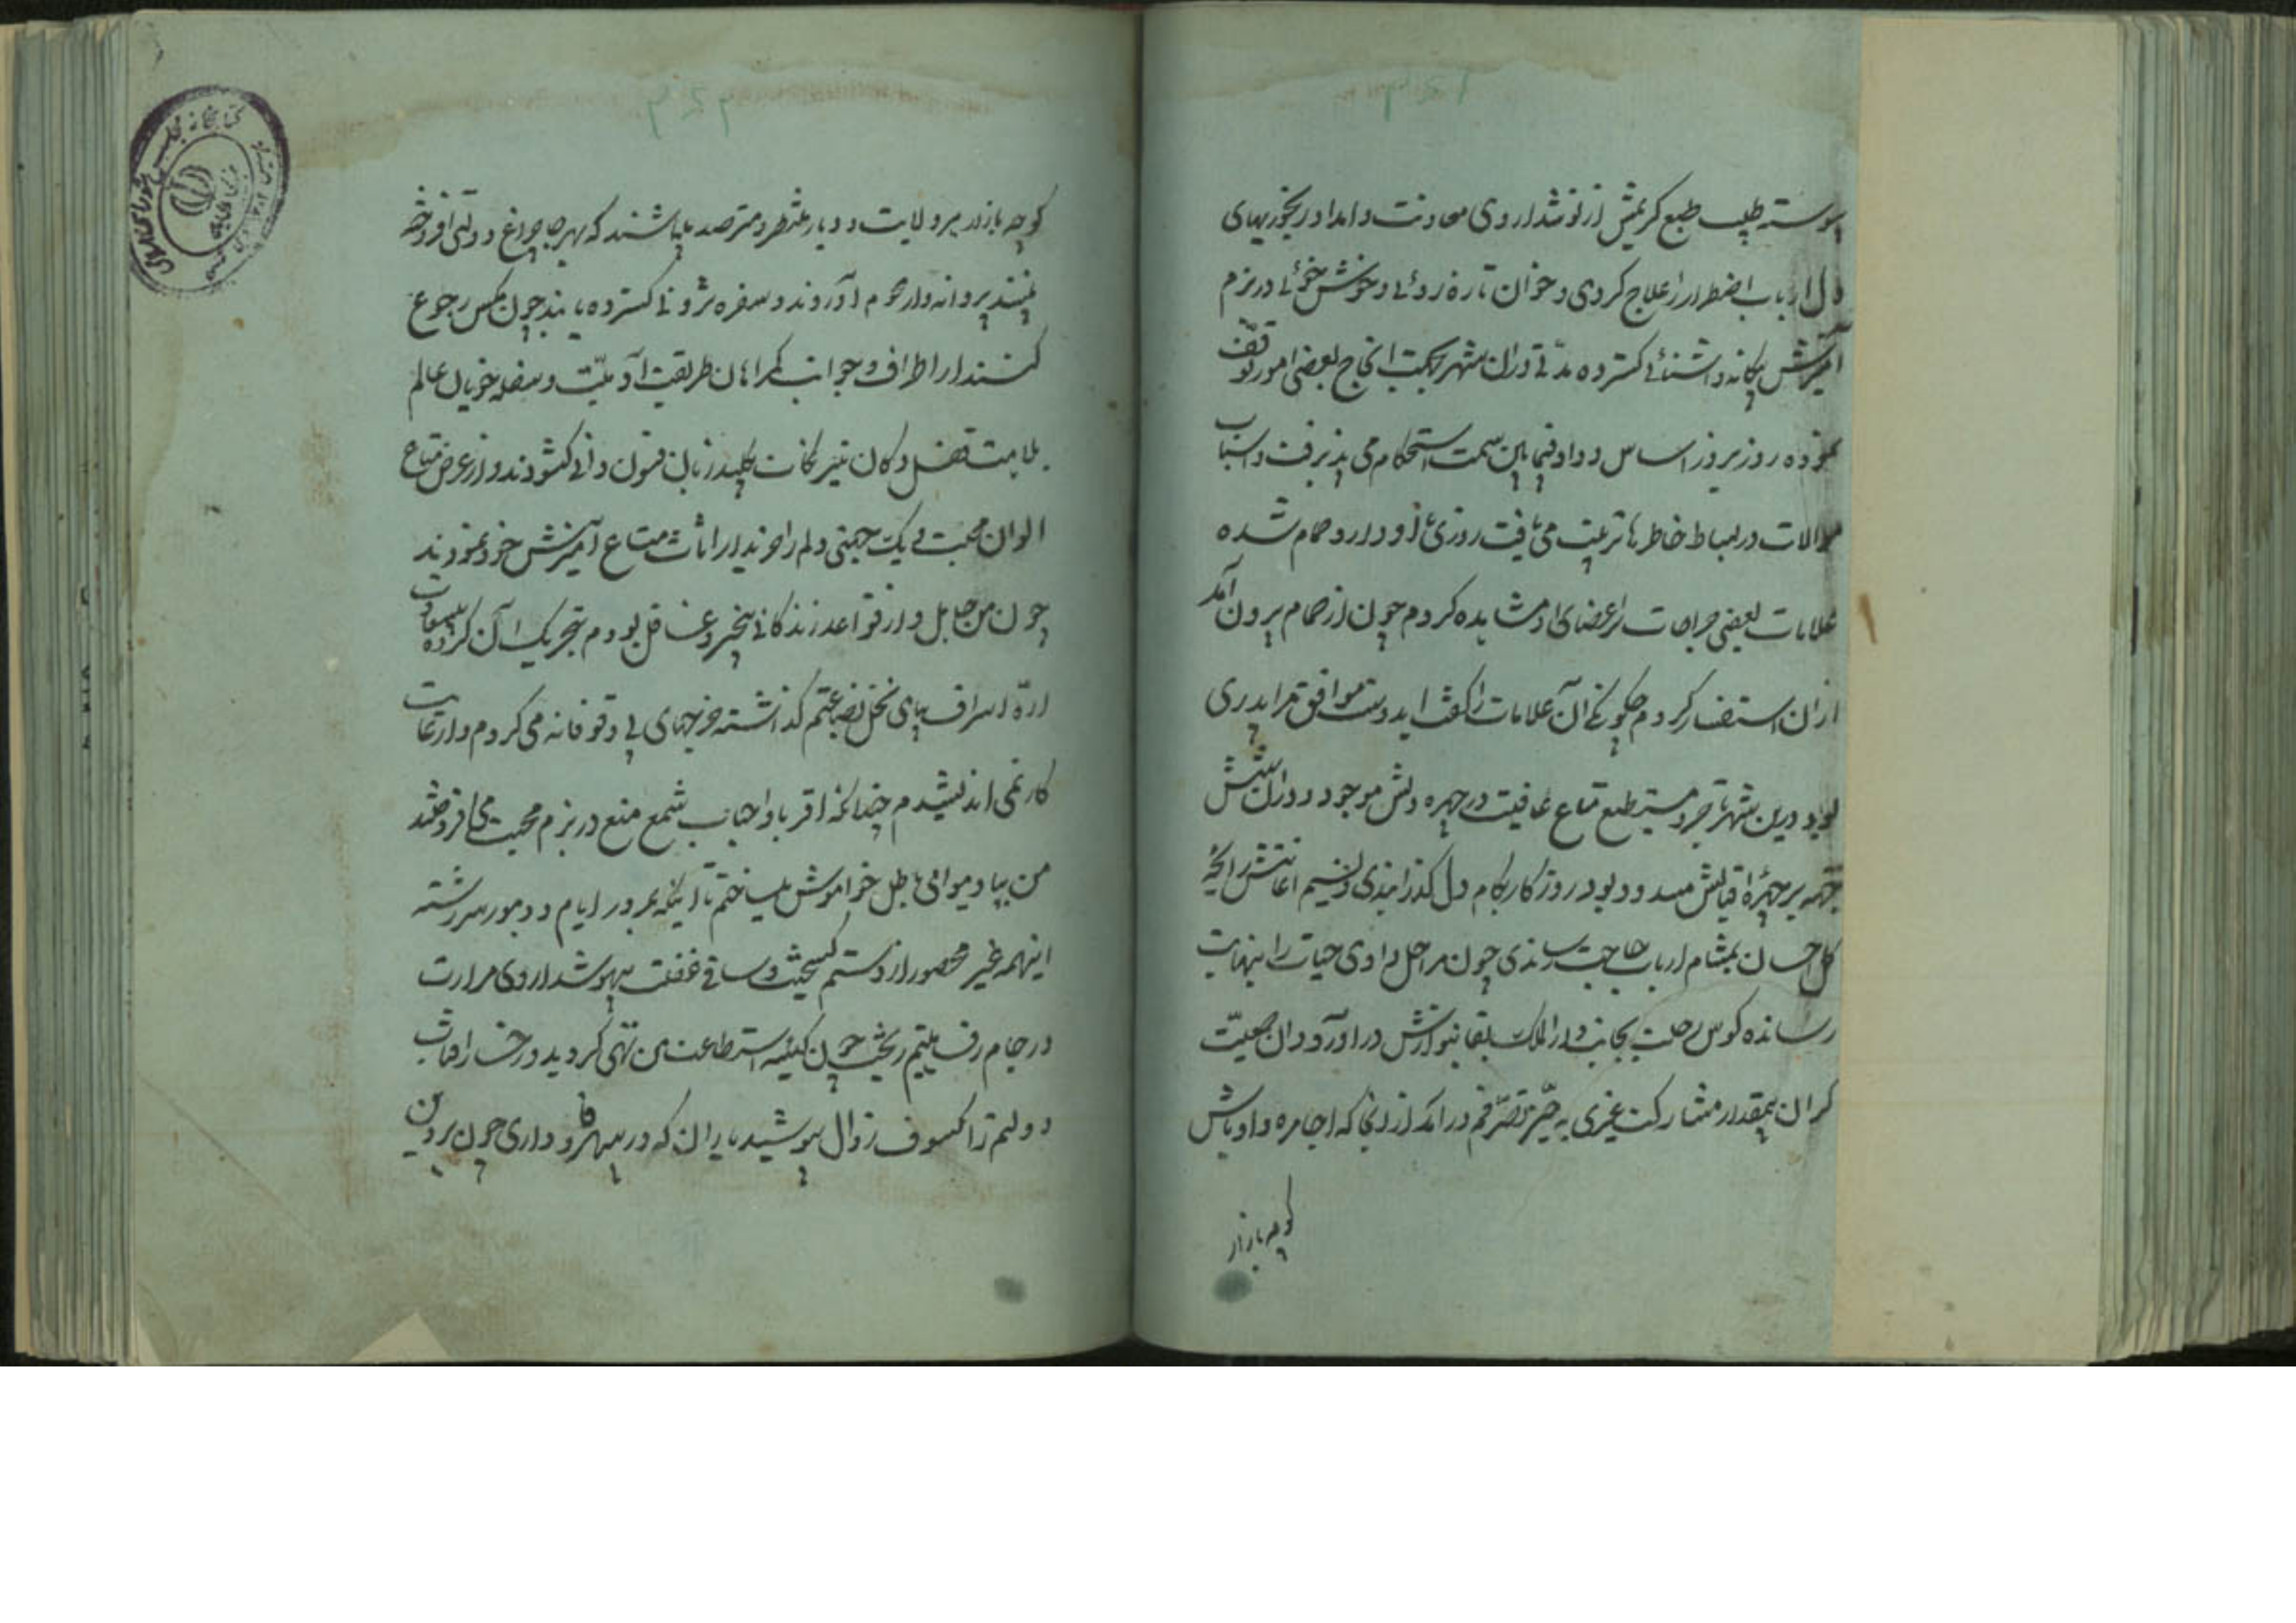 پیوسته طبیب طبع کریمش از نوشداروی معاونت و امداد رنجوریهای
دل ارباب اضطرار را علاج کردی و خوان تازه روئی و خوش خوئی در بزم
آمیزش بیگانه و آشنائی گسترده مدتی در آن شهر بجهت انجاح بعضی امور توقف
نموده روز بروز اساس وداد فیمابین سمت استحکام می پذیرفت و اسباب
موالات در بساط خاطرها ترتیب می یافت روزی با او وارد حمام شده
علامات بعضی جراحات بر اعضای او مشاهده کردم چون از حمام بیرون آمد
از آن استفسار کردم چگونگی آن علامات را گفت اید وست موافق مرا پدری
بود درین شهر تاجر و مستطیع متاع عافیت در حجره دلش موجود و در
بر چهره اقبالش مسدود بود روزگار بکام دل گذرانیدی و نسیم
گل احسان بمشام ارباب حاجت رساندی چون مراحل وادی حیات را بنهایت
رسانده کوس رحلت بجانب دار الملک بقا بنوازش در آورد و آن جمعیت
گران بیمقدار مشارکت غیری به حیز تصرفم در آمد از آنجا که اجامره و اوباش
کوچه بازار
کوچه بازار هر ولایت و دیار منتظر و مترصد میباشند که بهر جا چراغ دولتی افروخته
بینند پروانه وار هجوم آورند و سفره ثروتی گسترده یابند چون مگس رجوع
کنند از اطراف و جوانب گمراهان طریقت آدمیت و سفله خویان عالم
ملامت قفل دکان تیرنجات بکلید زبان فسون دانی گشودند و از عرض متاع
الوان محبت و یک جهتی دلم را خریدار اثاث متاع آمیزش خود نمودند
چون من جاهل و از قواعد زندگانی بیخبر و غافل بودم بتحریک آن گروه
اره اسراف بپای نخل بضاعتم گذاشته خرجهای بی وقوفانه می کردم و از عاقبت
کار نمی اندیشیدم چندانکه اقربا و احباب شمع منع در بزم محبت می افروختند
من بباد موافی باطل خاموش میساختم تا اینکه بمرور ایام و دهور سررشته
اینهمه غیر محصور از دستم گسیخت و ساقی غفلت بیهوشداروی مرارت
در جام رفاهیتم ریخت چون کیسه استطاعت من تهی گردید و رخسار آفتاب
دولتم را کسوف زوال پوشید یاران که در سپهر وفاداری چون پروین